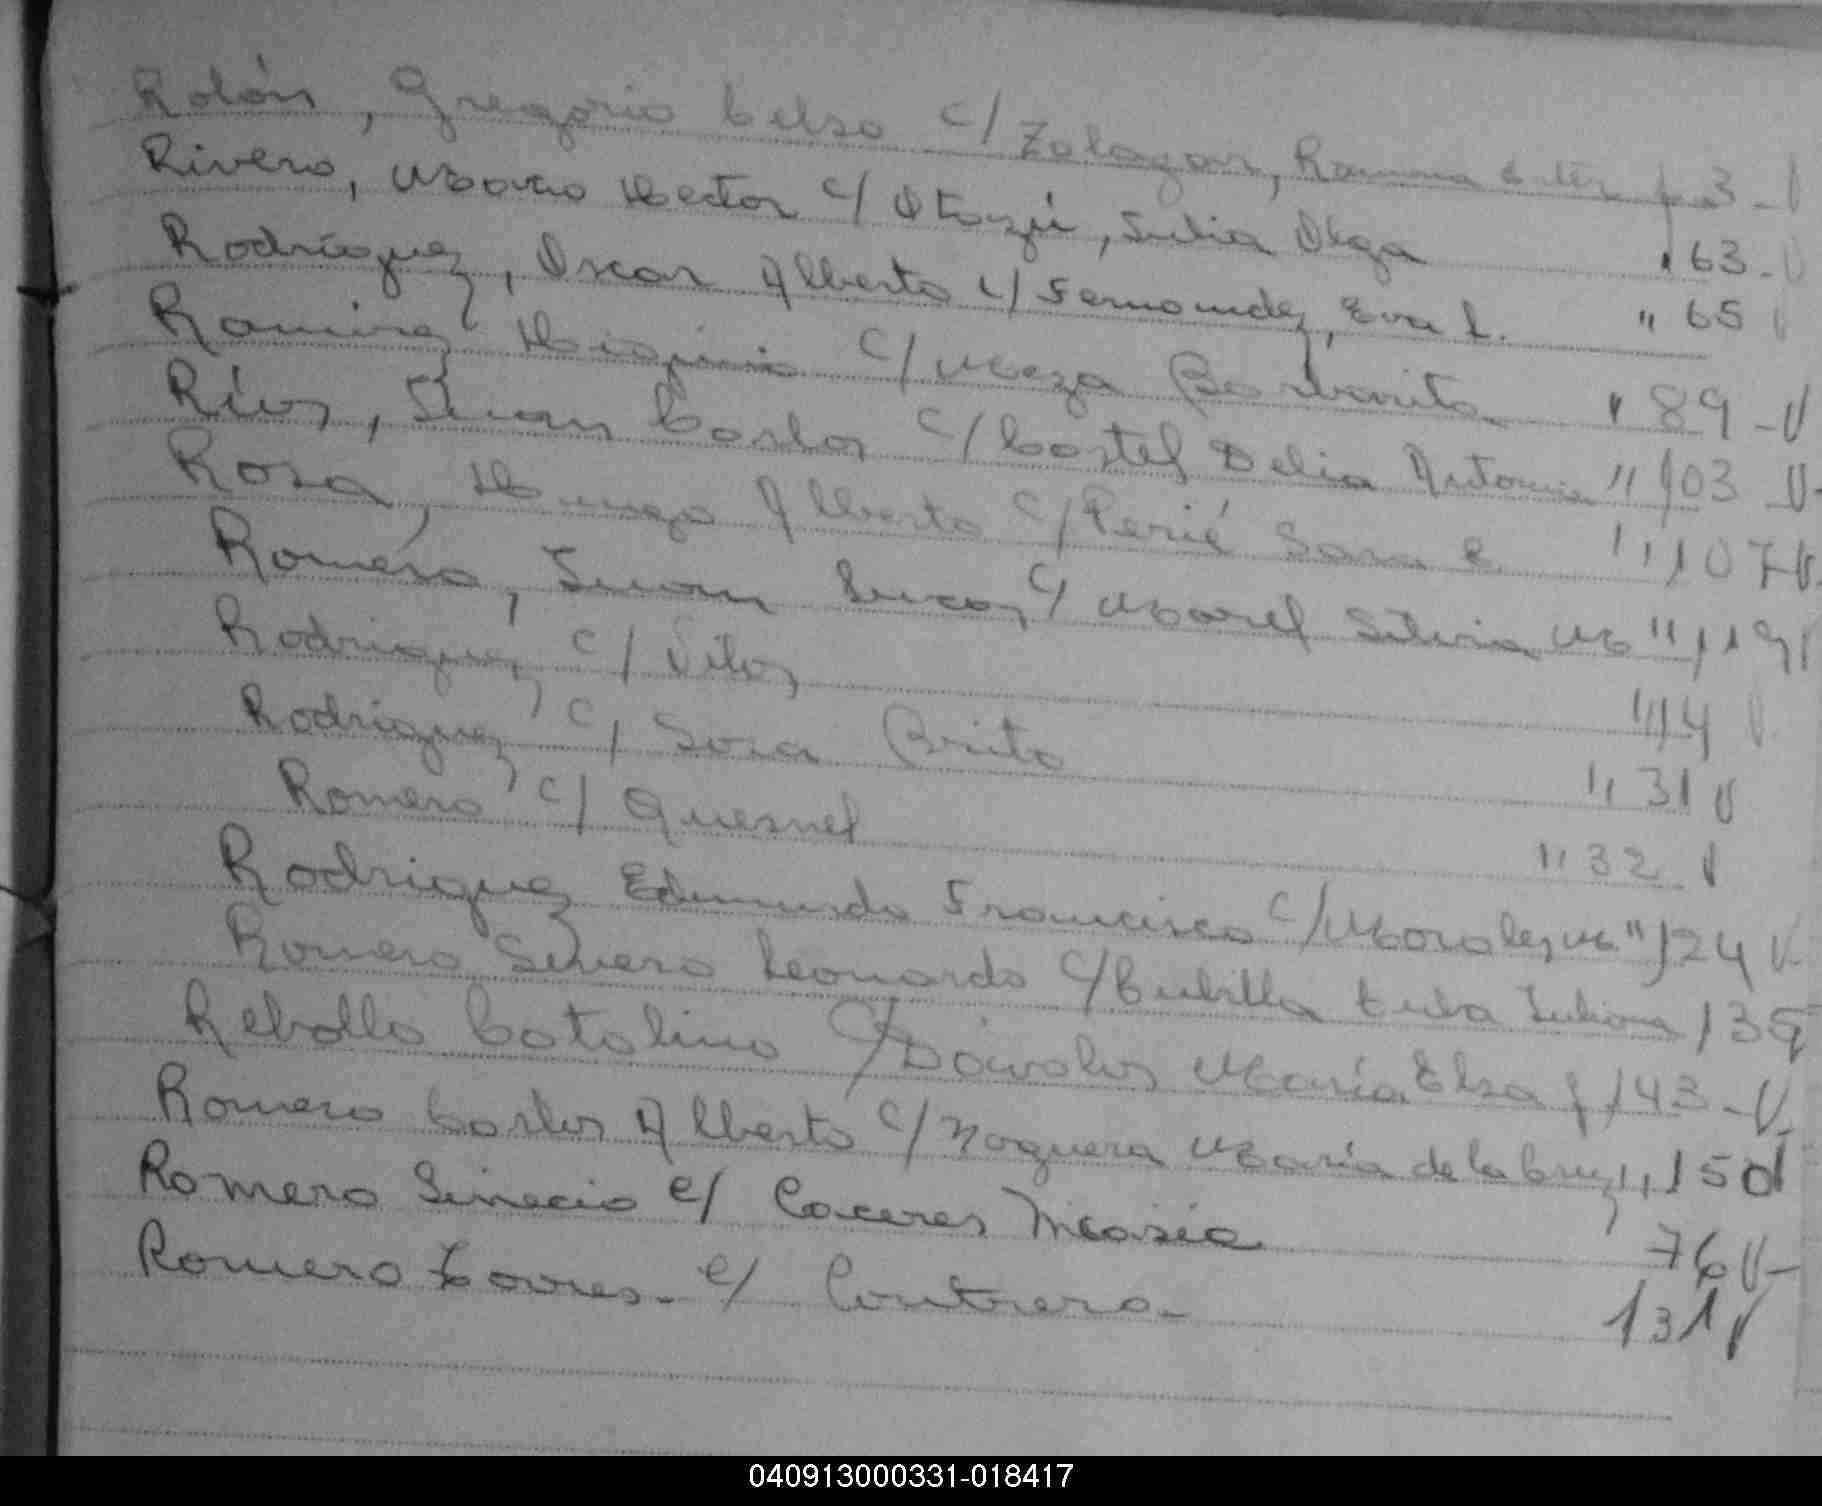 Rolón, Gregorio Celso c/ Zalazar, Ramona Ester f 3 -V
Rivero, Mario Hector c/ Otazú, Julia Olga " 63 -V
Rodríguez, Oscar Alberto c/ Fernandez, Eva L. " 65 V
Ramirez Higinio c/ Meza Barbarita " 89 -V
Ríos, Juan Carlos c/ Costel Delia Antonia " 103 V
Rosa, Hugo Alberto c/ Perié Sara E. " 107 V
Romero, Juan Lucas c/ Morel Silvia M " 119
Rodriguez c/ " 14 V
Rodriguez c/ Sosa Brito " 31 V
Romero c/ Quesnel " 32 V
Rodriguez Edmundo Francisco c/ Morales M " 124 V
Romero Severo Leonardo c/ Cubilla Juliana 139
Rebollo Catalino c/ Dávalos María Elsa f 143 -V
Romero Carlos Alberto c/ Noguera María de la Cruz " 150
Romero Sinecio c/ Caceres Nicasia 76 V
Romero Torres - c/ Contrera - 131 V
040913000331-018417